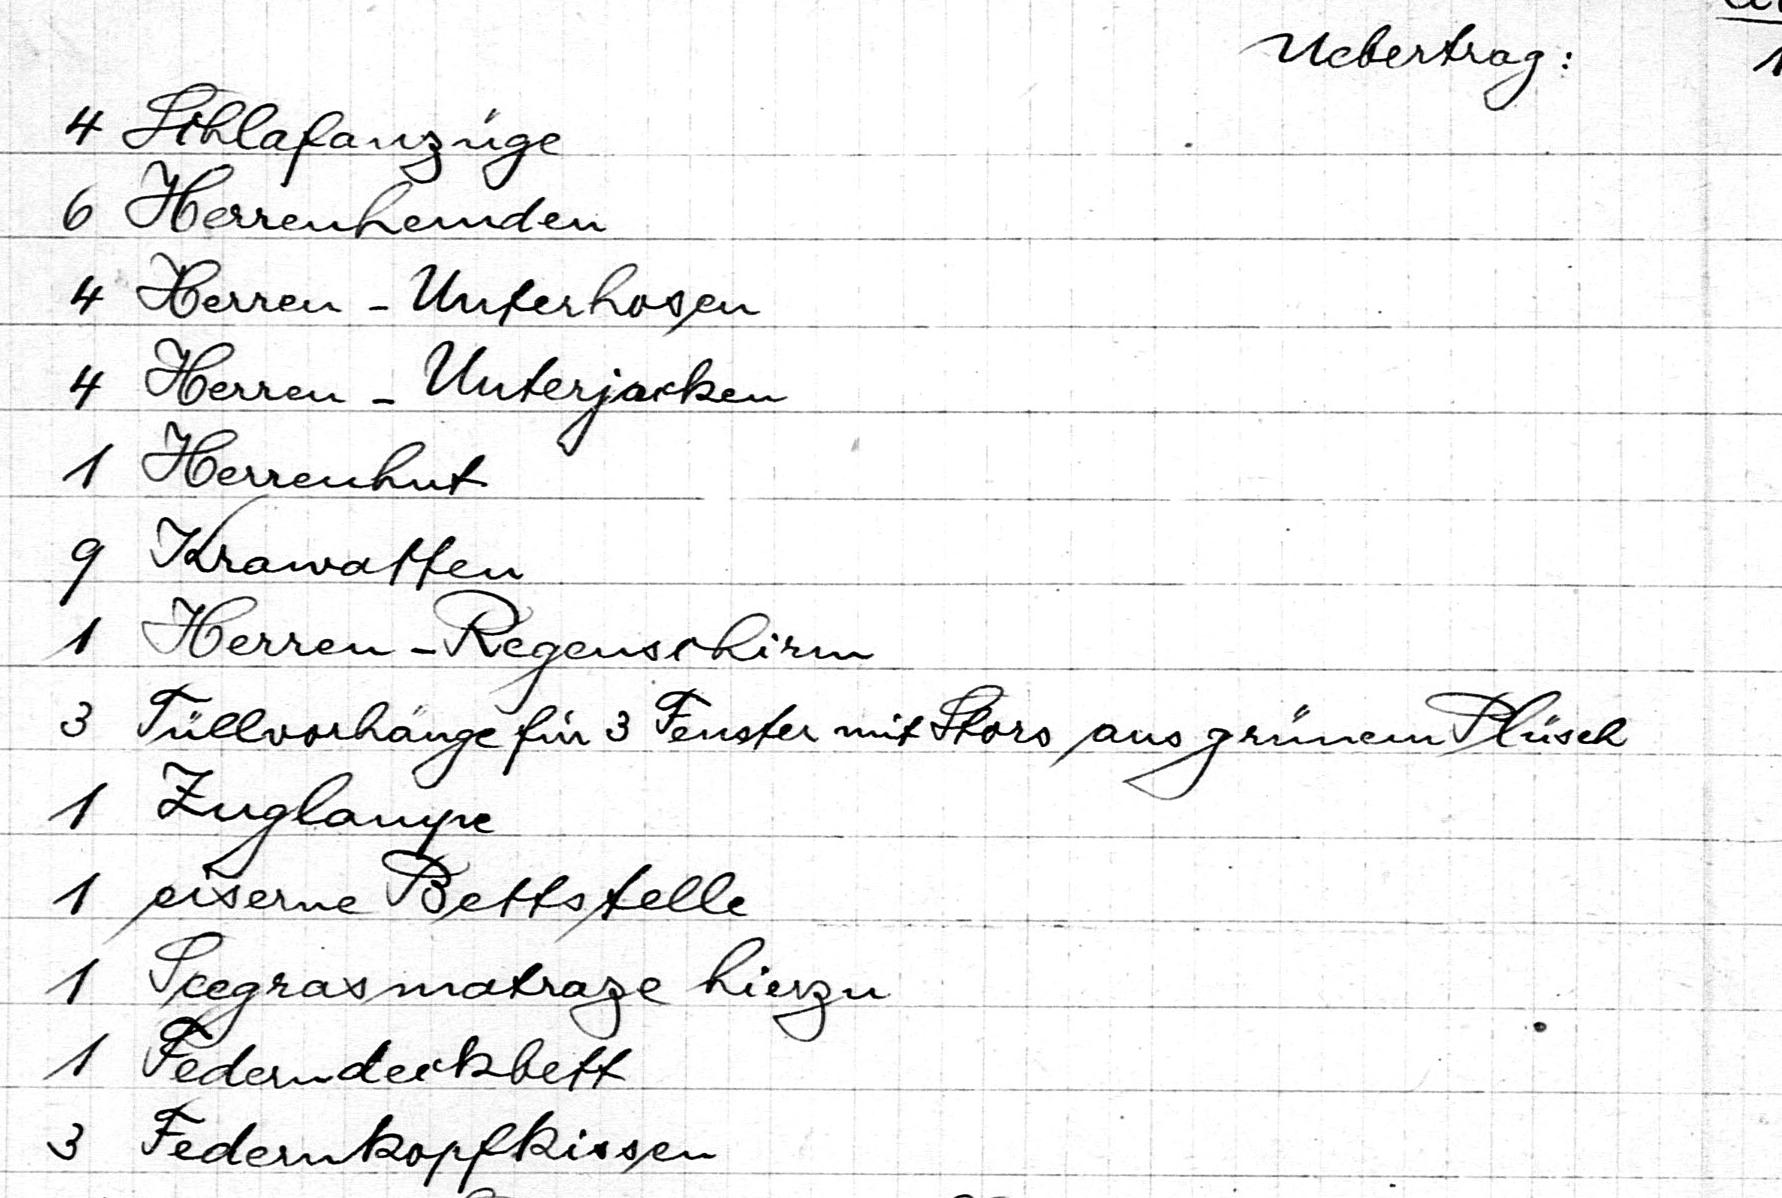 Uebertrag:
4 Schlafanzüge
6 Herrenhemden
4 Herren - Unterhosen
4 Herren - Unterjacken
1 Herrenhut
9 Krawatten
1 Herren - Regenschirm
3 Tüllvorhänge für 3 Fenster mit Stors aus grünem Plüsch
1 Zuglampe
1 eiserne Bettstelle
1 Seegrasmatraze hierzu
1 Federndeckbett
3 Federnkopfkissen